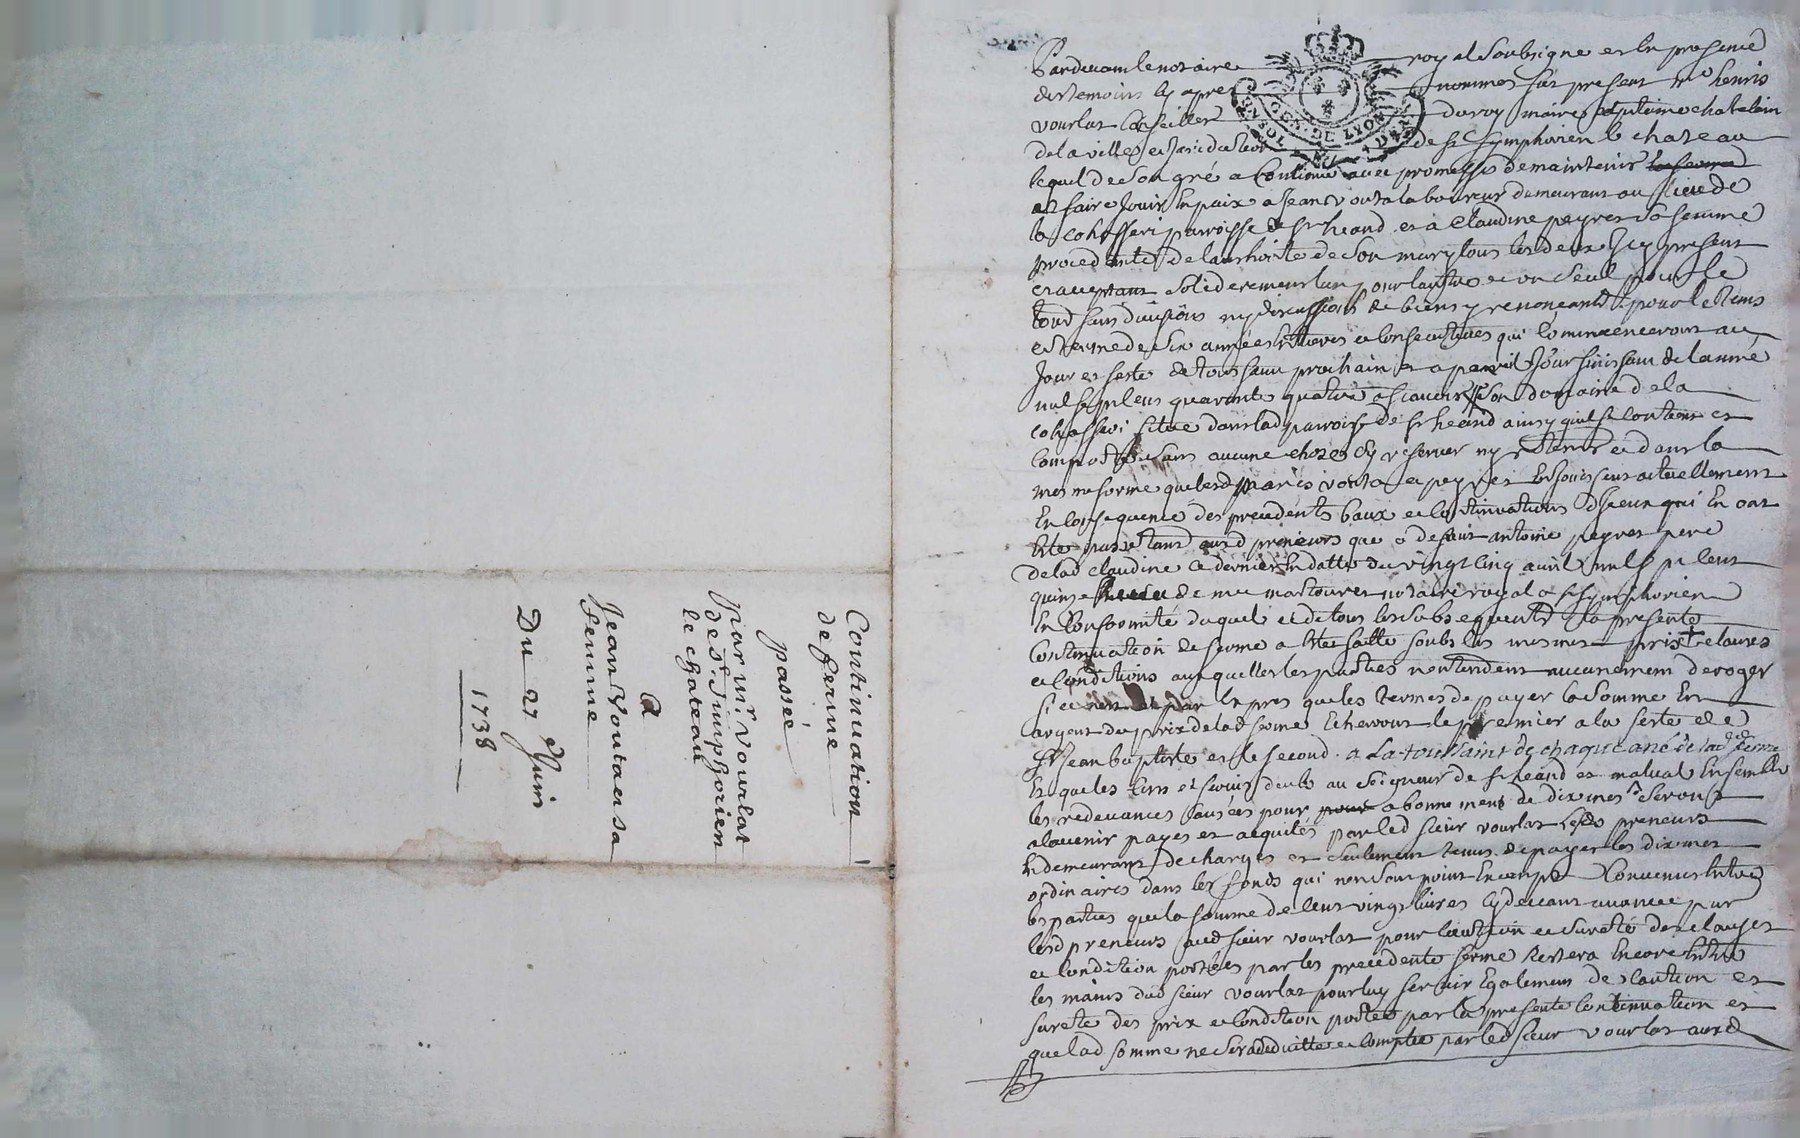 Continuation
de ferme
passée
par mr. vourlat
de st. simphorien
le chateau
a
Jean Voutaersa
femme
Du 27 Juin
1738
Pardevant le notaire royal soubsigne et en presence
des temoins cy apres nommes fut present me henris
vourlat Coseiller du roy maire capitaine chatelain
de la ville et Jurisdiction de st symphorien le chateau
lequel de son gré a Continué avec promesse de maintenir
et faire Jouir en paix a Jean vouta laboureur demeurant au lieu de
la cohasseri parroisse de st heand et a Claudine peyret sa femme
procedante de lauthorite de son mary tous les deux Icy present
et acceptant soliderement lun pour lautre et un seul pour le
tout sans division ny discussion de biens y renoncant pour le tems
et terme de six années Entieres et Consecutives qui Commenceront au
Jour et feste de toussaint prochain et a pareil Jour finissant de lanné
mil sept cens quarante quatre a scavoir son domaine de la
cohasseri situe dans lad parroisse de st heand ainsy quil se contient et
Comporte sans aucune chose sy reserver ny retenir et dans la
mesme forme que lesd maries vouta et peyret En Jouissent actuellement
En Consequence des precedents baux et Continuations dIceux qui En ont
Ete passe tant aud preneurs que a defunt antoine peyret pere
de lad Claudine Ce dernier En datte du vingt Cinq avril mil sept cent
quinze de me martouret notaire royal a st symphorien
En Conformité duquel et de tous les subsequents la presente
Continuation de ferme a Ete faitte soubs les mesmes prix + clauses
et Conditions auxquelles les parties nentendent aucunement deroger
si ce nest En par Expres que les termes de payer la somme En
argent du prix de lad ferme Echerront le premier a la feste de
st Jean baptiste et le second a La toussaint de chaque ané de lad ferme
Et que les Cens et servis deubs au seigneur de st heand et malval Ensemble
les redevances Causées pour abonnement de dixmes seront
a lavenir payes et acquités par led sieur vourlat lesd preneurs
En demeurant decharges et seulement tenus de payer les dixmes
ordinaires dans les fonds qui nen sont point Exempts Convenus Entre
les parties que la somme de Cent vingt livres cy devant avancée par
lesd preneurs aud sieur vourlat pour Caution et sureté des clauses
et Condition portées par les precedente ferme restera Encore Entre
les mains dud sieur vourlat pour luy servir Egalement de Caution et
surete des prix et Condition portée par la presente Continuation et
que lad somme ne sera deduitte et Comptée par led sieur vourlat aux d